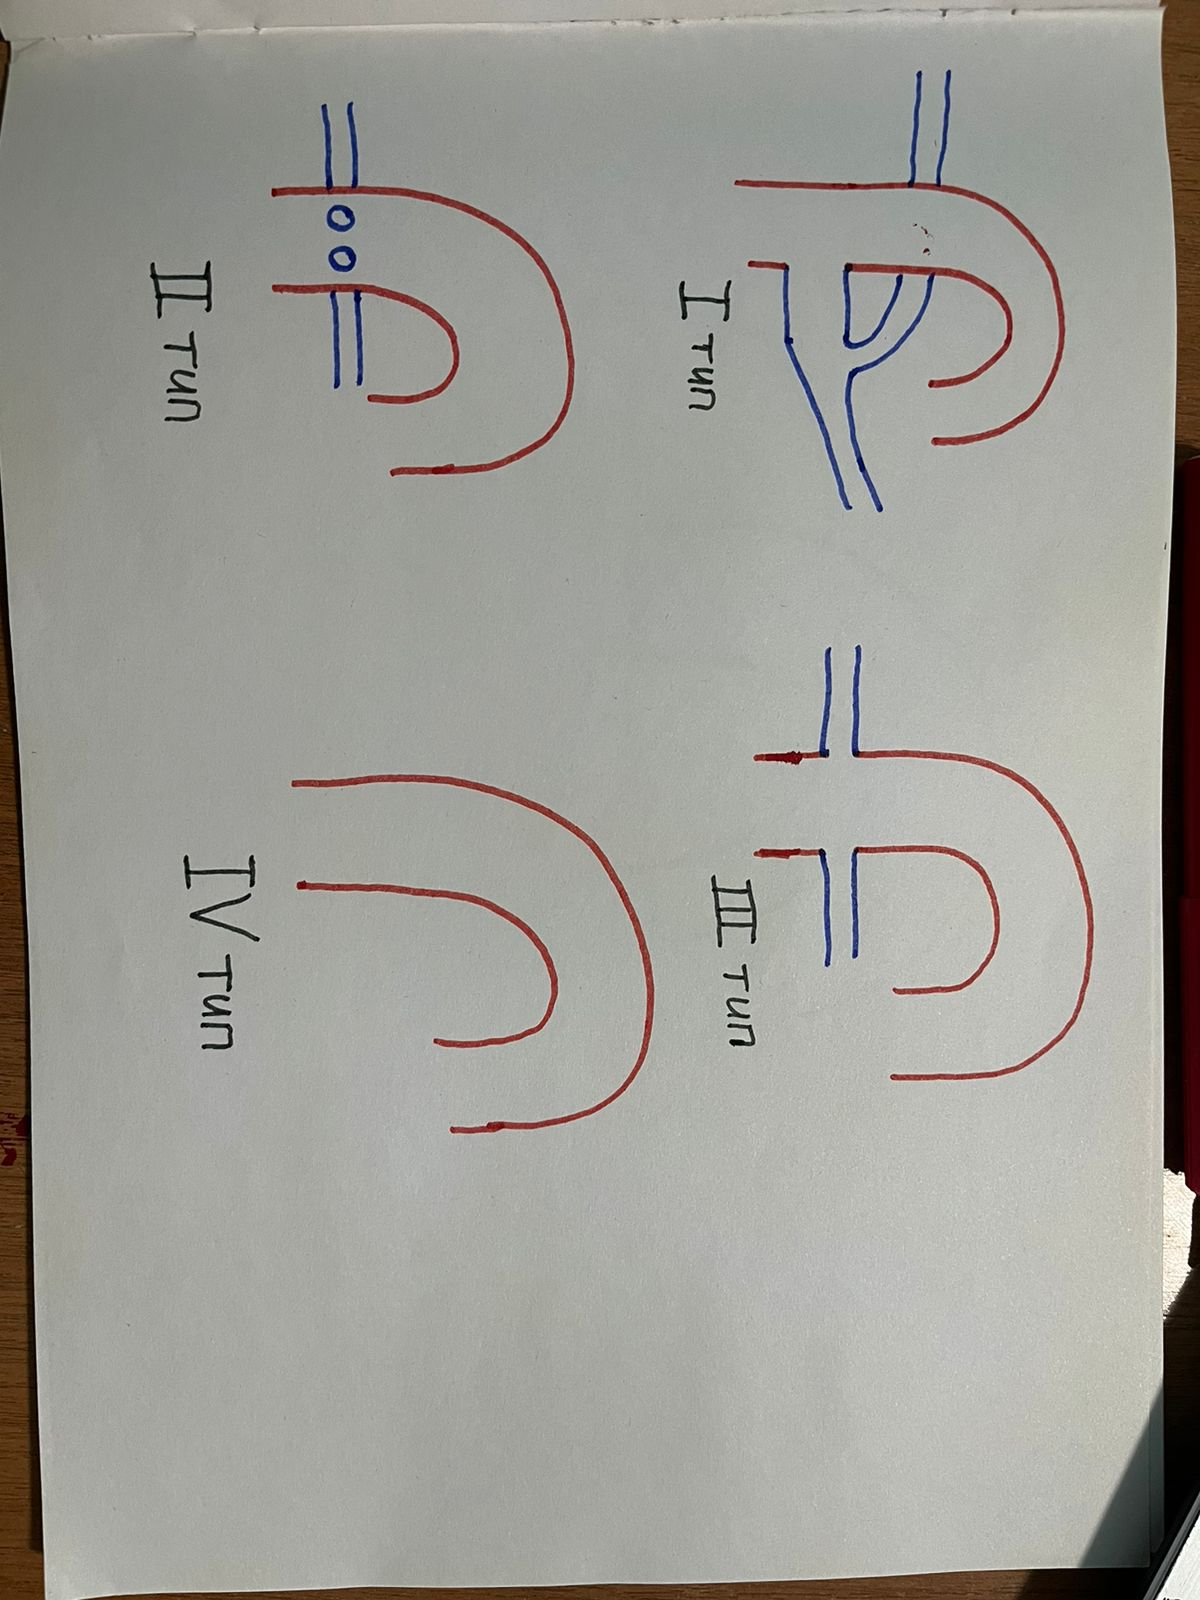 I тип
II тип
III тип
IV тип